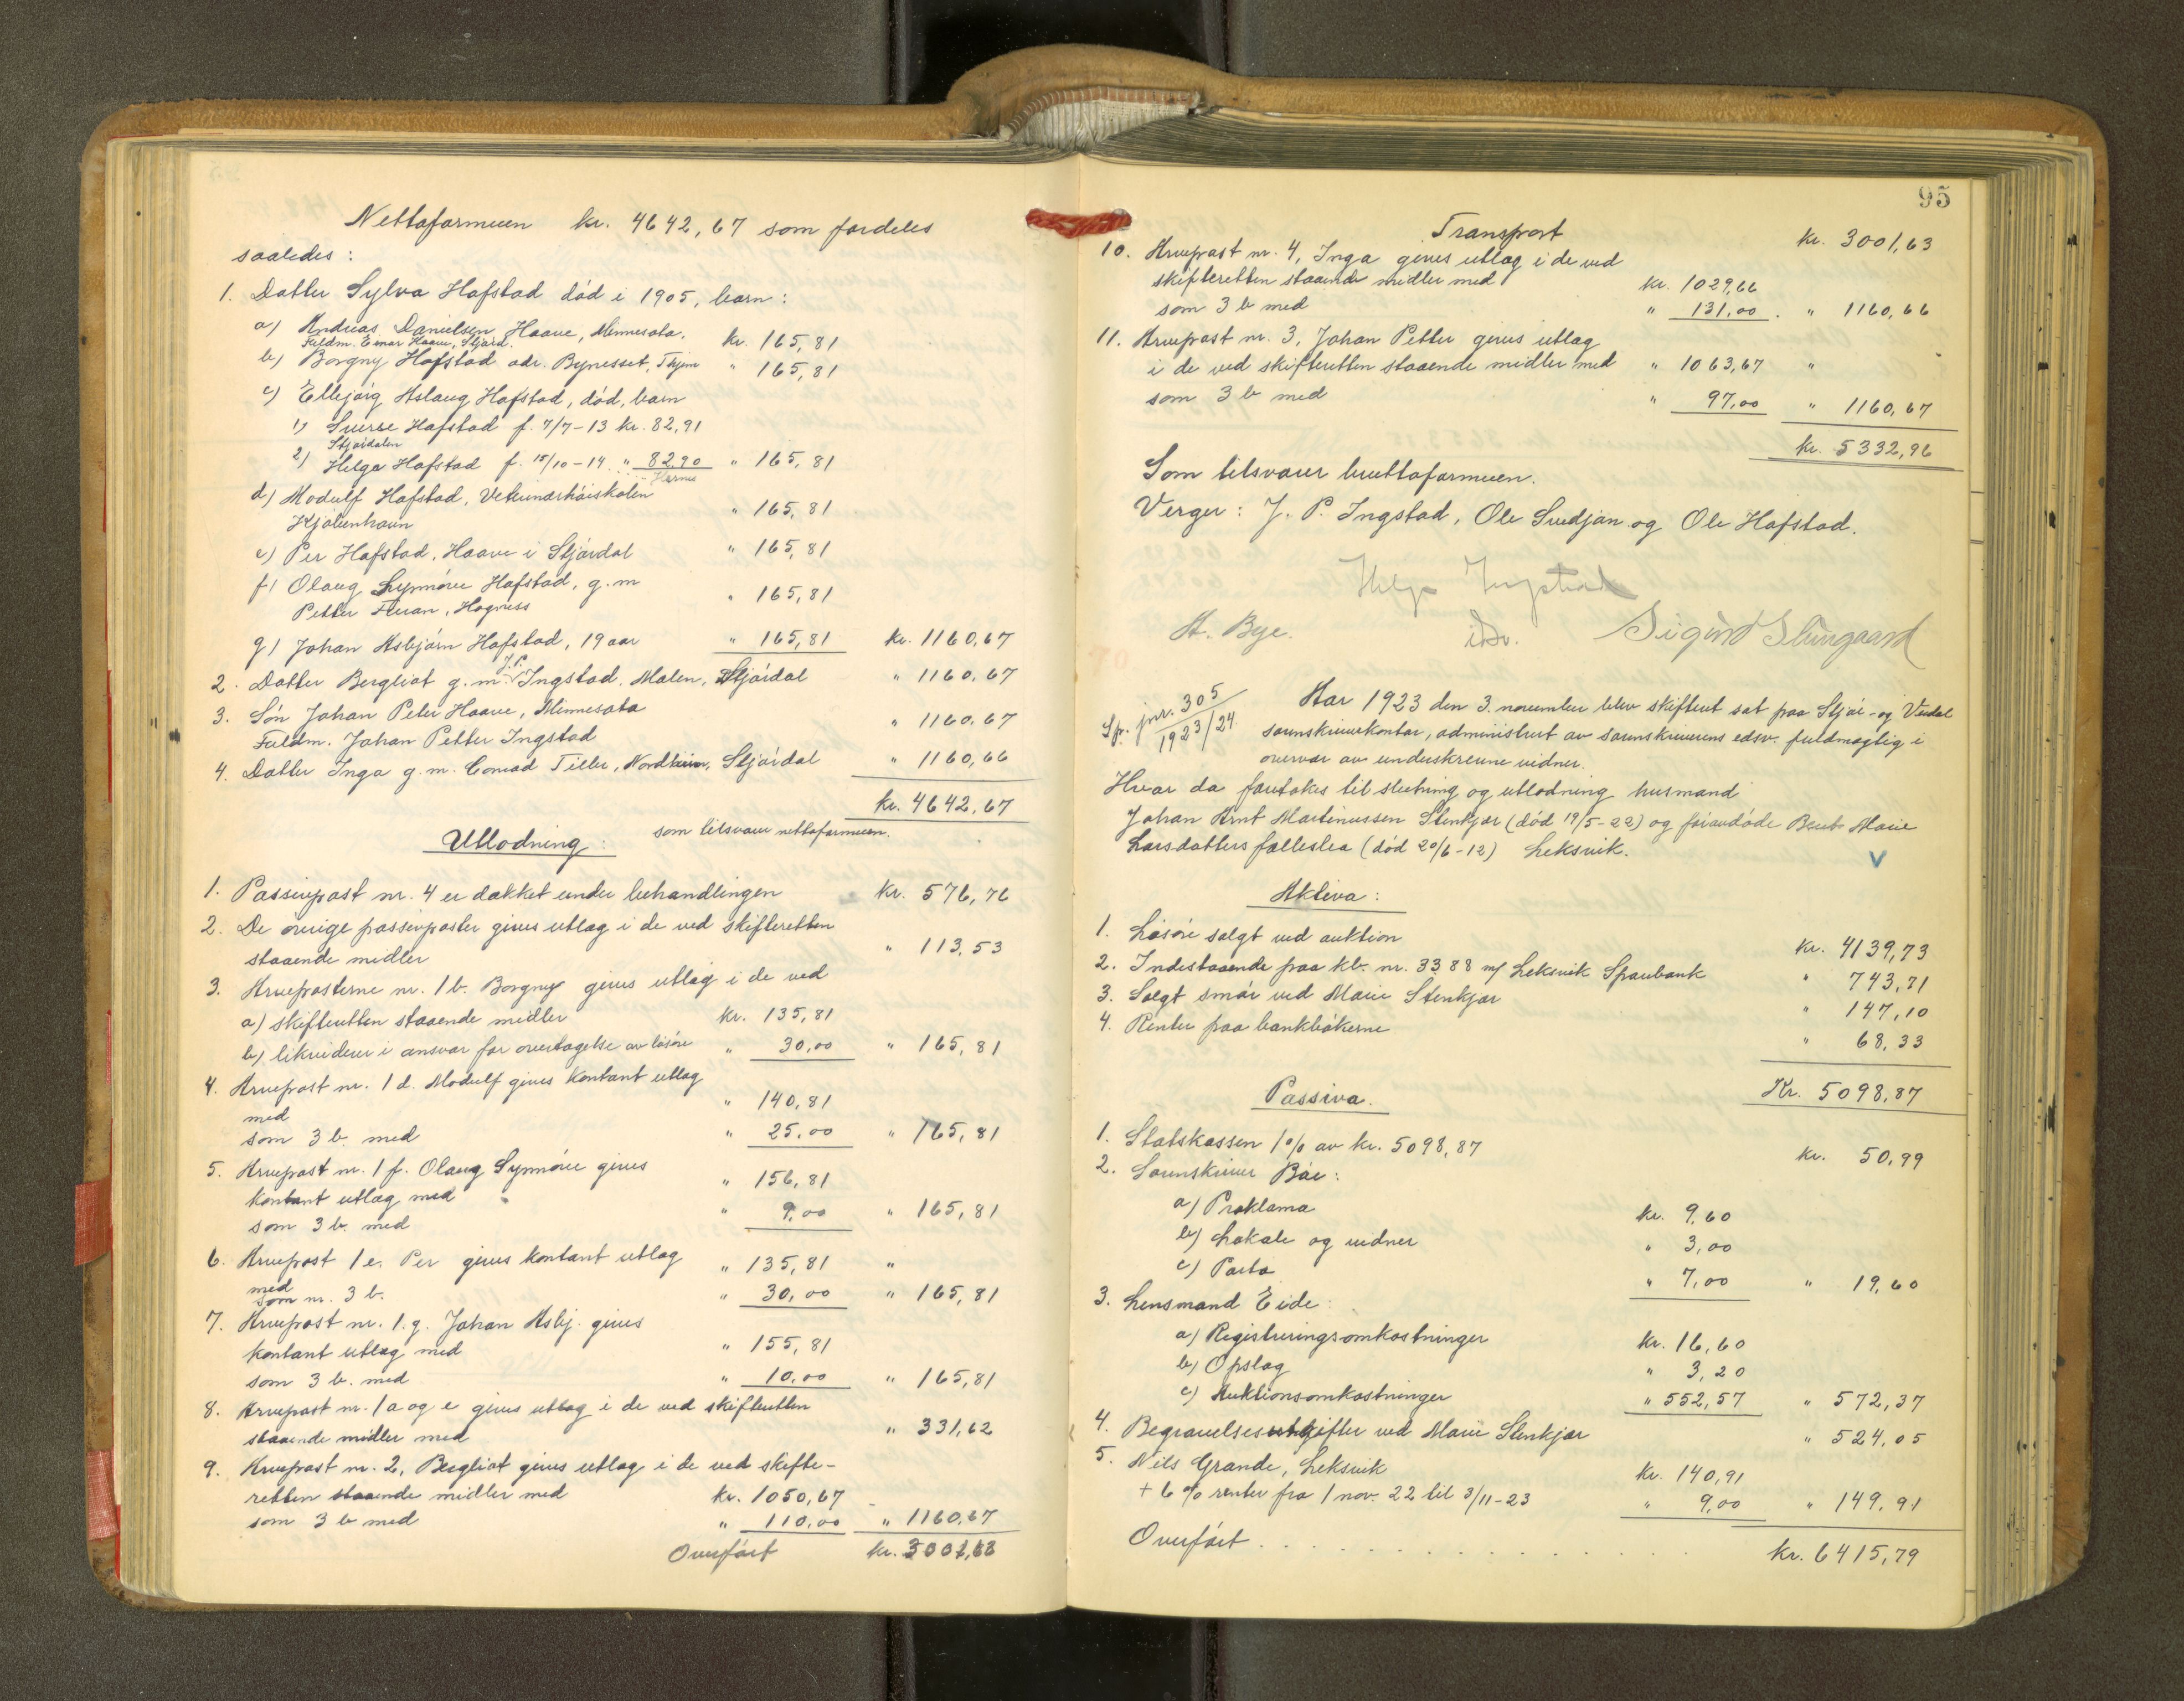 Nettoformuen kr. 4642,67 som fordeles
saaledes :
1. Datter Sylva Hofstad död i 1905, barn :
a) Andreas Danielsen Haave, Minnesota. kr. 165,81
Fuldm. Einar Haave, Stjørd.
b) Borgny Hofstad adr. Bynesset, Thjem " 165,81
c) Ellbjørg Aslaug Hofstad, död, barn
1) Sverre Hofstad f. 7/7-13 kr. 82,91
Stjørdalen
2) Helga Hofstad f. 15/10-14 " 82,90 " 165,81
d) Modulf Hofstad, Veterinærhöiskolen
Kjöbenhavn " 165,81
e) Per Hofstad, Haave i Stjørdal " 165,81
f) Olaug Synnöve Hofstad, g.m
Petter Fluan, Hogness " 165,81
g) Johan Asbjørn Hofstad, 19 aar " 165,81 kr. 1160,67
2. Datter Bergliot g.m. J.P. Ingstad, Molen, Stjørdal " 1160,67
3. Sön Johan Peter Haave, Minnesota " 1160,67
Fuldm. Johan Petter Ingstad
4. Datter Inga g.m. Conrad Tiller, Nordheim, Stjørdal " 1160,66
kr. 4642,67
som tilsvarer nettoformuen.
Utlodning :
1. Passivpost nr. 4 er dækket under behandlingen kr. 576,76
2. De övrige passivposter gives utlæg i de ved skifteretten
staaende midler " 113,53
3. Arveposterne nr. 1 b. Borgny gives utlæg i de ved
a) skifteretten staaende midler kr. 135,81
b) likviderer i ansvar for overtagelse av lösöre " 30,00 " 165,81
4. Arvepost nr. 1 d. Modulf gives kontant utlæg
med " 140,81
som 3 b. med " 25,00 " 165,81
5. Arvepost nr. 1 f. Olaug Synnöve gives
kontant utlæg med " 156,81
som 3 b. med " 9,00 " 165,81
6. Arvepost 1 e. Per gives kontant utlæg
med " 135,81 "
som nr. 3 b. " 30,00 " 165,81
7. Arvepost nr. 1.g. Johan Asbj. gives
kontant utlæg med " 155,81
som 3 b. med " 10,00 " 165,81
8. Arvepost nr. 1 a og c gives utlæg i de ved skifteretten
staaende midler med " 331,62
9. Arvepost nr. 2, Bergliot gives utlæg i de ved skifte-
retten staaende midler med kr. 1050,67
som 3 b med " 110,00 " 1160,67
Overført kr. 3001,63
95
Transport kr. 3001,63
10. Arvepost nr. 4, Inga gives utlæg i de ved
skifteretten staaende midler med kr. 1029,66
som 3 b med " 131,00 . " 1160,66
11. Arvepost nr. 3, Johan Petter gives utlæg
i de ved skifteretten staaende midler med " 1063,67 "
som 3 b med " 97,00 " 1160,67
kr. 5332,96
Som tilsvarer bruttoformuen.
Verger : J. P. Ingstad, Ole Svedjan og Ole Hofstad.
Helge Ingstad
A. Bye. edsv. Sigurd Slungaard
Sp. jnr. 305
1923/24
Aar 1923 den 3. november blev skifteret sat paa Stjør- og Værdal
sorenskriverkontor, administrert av sorenskriverens edsv. fuldmægtig i
overvær av underskrevne vidner.
Hvor da foretokes til slutning og utlodning husmand
Johan Arnt Martinussen Stenkjær (død 19/5-22) og forøvdøde Berit Marie
Larsdatters fællesbo (død 20/6-12) Leksvik.
V
Aktiva :
1. Lösöre solgt ved auktion kr. 4139,73
2. Indestaaende paa kb. nr. 3388 m/ Leksvik Sparebank " 743,71
3. Solgt smör ved Marie Stenkjær " 147,10
4. Renter paa bankbökerne " 68,33
Kr. 5098,87
Passiva.
1. Statskassen 1% av kr. 5098,87 kr. 50,99
2. Sorenskriver Böe :
a) Proklama kr. 9,60
b) Lokale og vidner " 3,00
c) Porto " 7,00 " 19,60
3. Lensmand Eide :
a) Registreringsomkostninger kr. 16,60
b) Opslag " 3,20
c) Auktionsomkostninger " 552,57 " 572,37
4. Begravelsesutgifter ved Marie Stenkjær " 524,05
5. Nils Grande, Leksvik kr. 140,91
+ 6% renter fra 1 nov. 22 til 3/11-23 " 9,00 " 149,91
Overført . . . . . . . . . . . . . kr. 6415,79